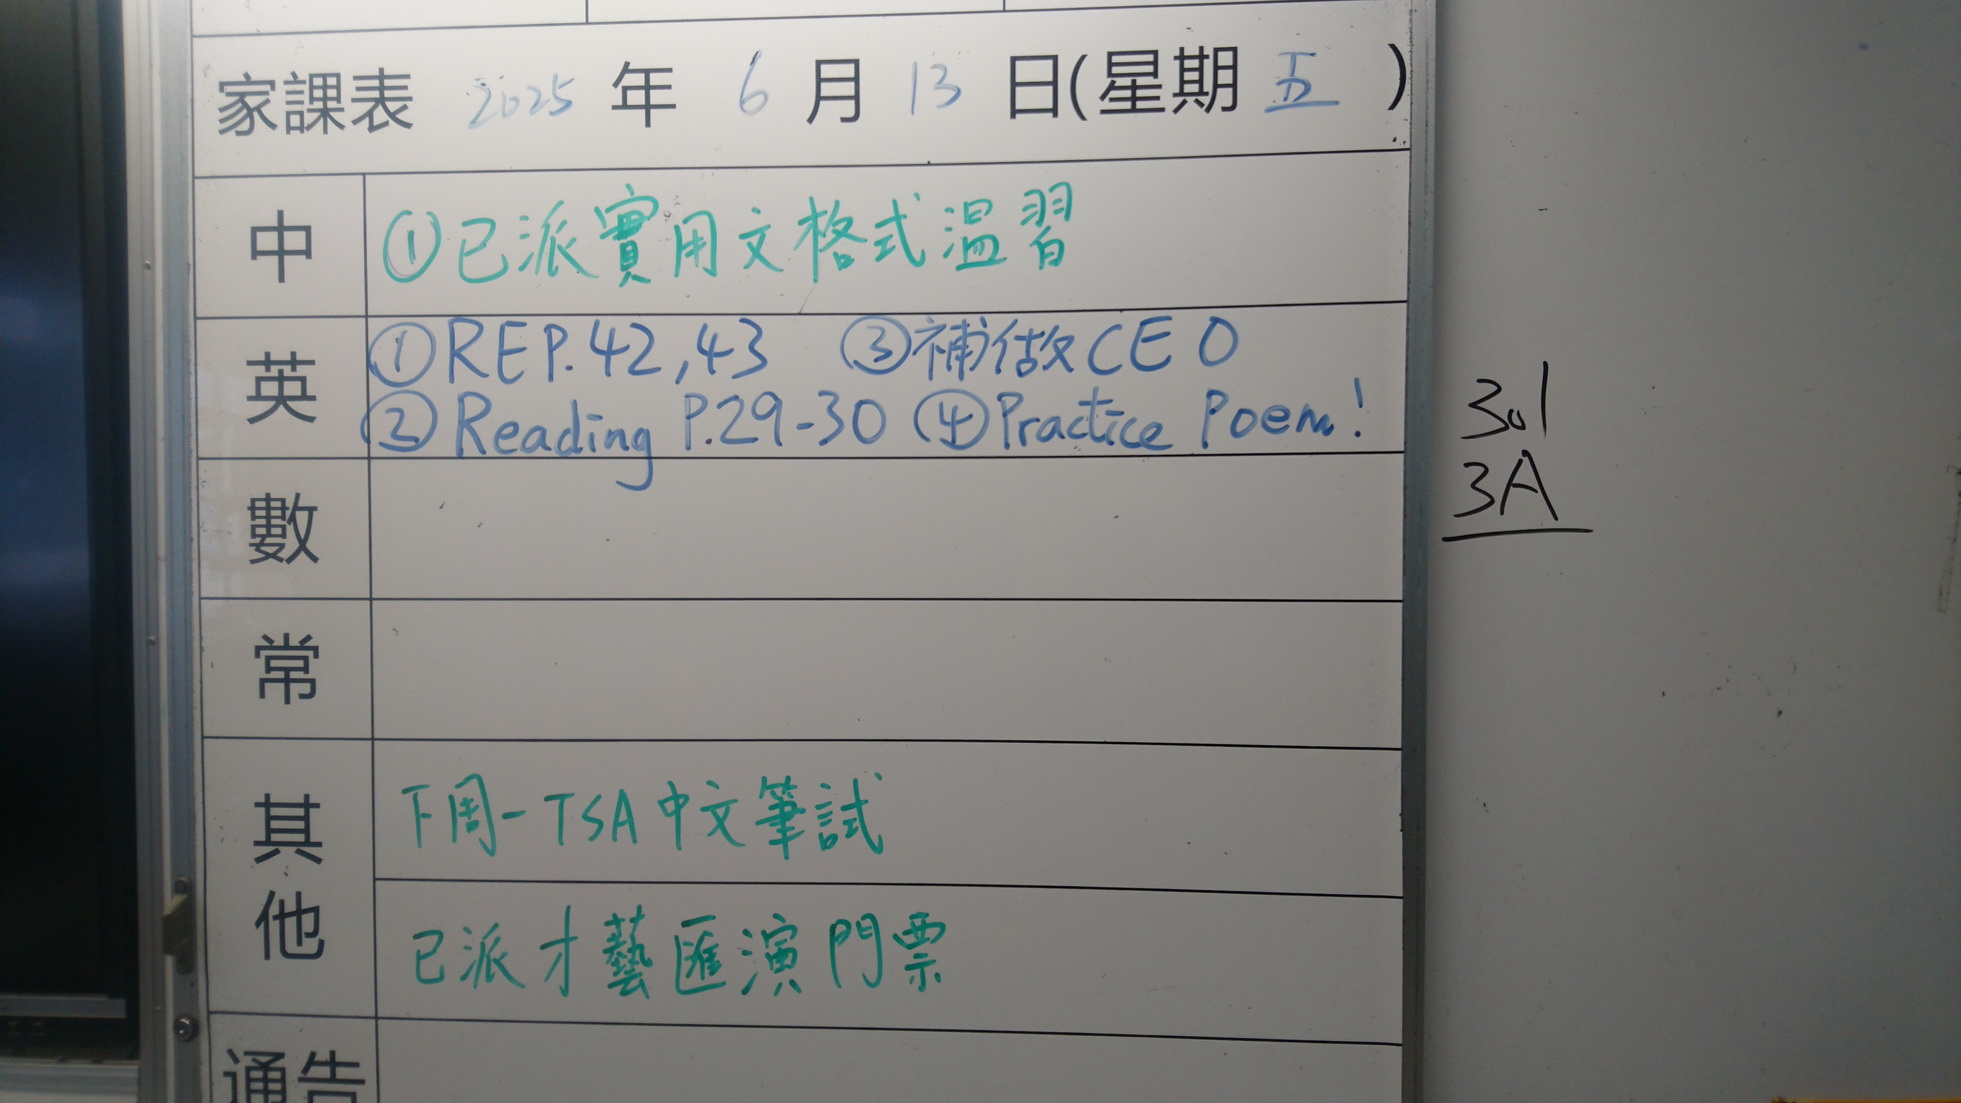 家課表 2025 年 6 月 13 日(星期 五 )
中 ①已派實用文格式溫習
英 ①REP.42,43 ③補做CEO
②Reading P.29-30 ④Practice Poem!
數
常
其他 下周-TSA中文筆試
已派才藝匯演門票
通告
301
3A